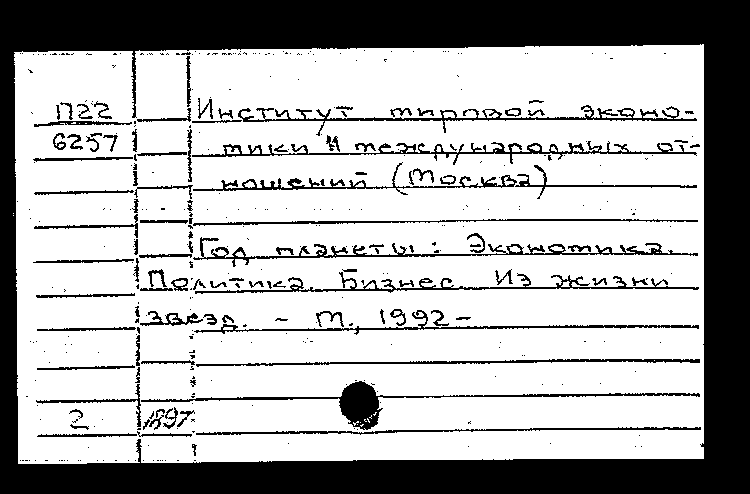 П22 Институт мировой эконо-
6257 мики и международных от-
ношений (Москва)
Год планеты: Экономика.
Политика. Бизнес. Из жизни
звезд. - М., 1992 -
2 1897